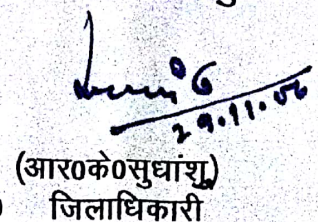 29.11.06
(आर0के0सुधांशु)
0 जिलाधिकारी